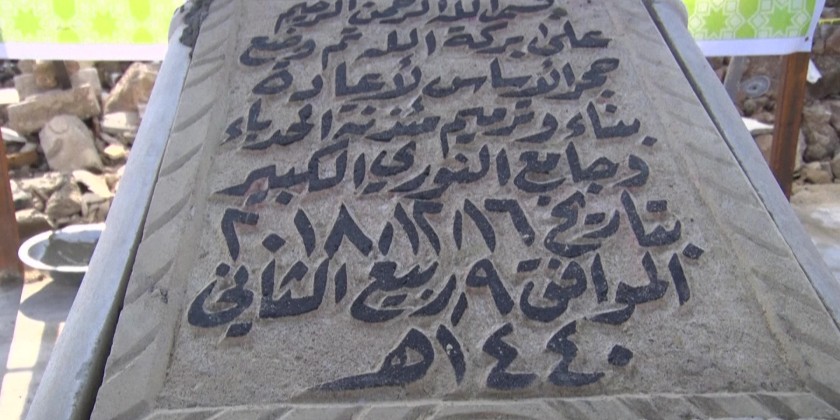 بسم الله الرحمن الرحيم
على بركة الله تم وضع
حجر الأساس لأعادة
بناء وترميم مئذنة الحدباء
وجامع النوري الكبير
بتاريخ ٢٠١٨/١٢/١٦
الموافق ٩/ربيع الثاني
١٤٤٠هـ